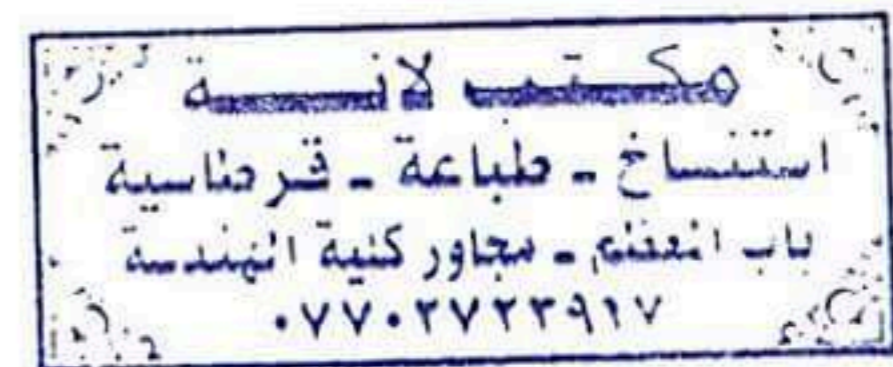 مكتب لانه
استنساخ - طباعة - قرطاسية
باب المعظم - مجاور كلية الهندسة
٠٧٧٠٢٧٢٣٩١٧